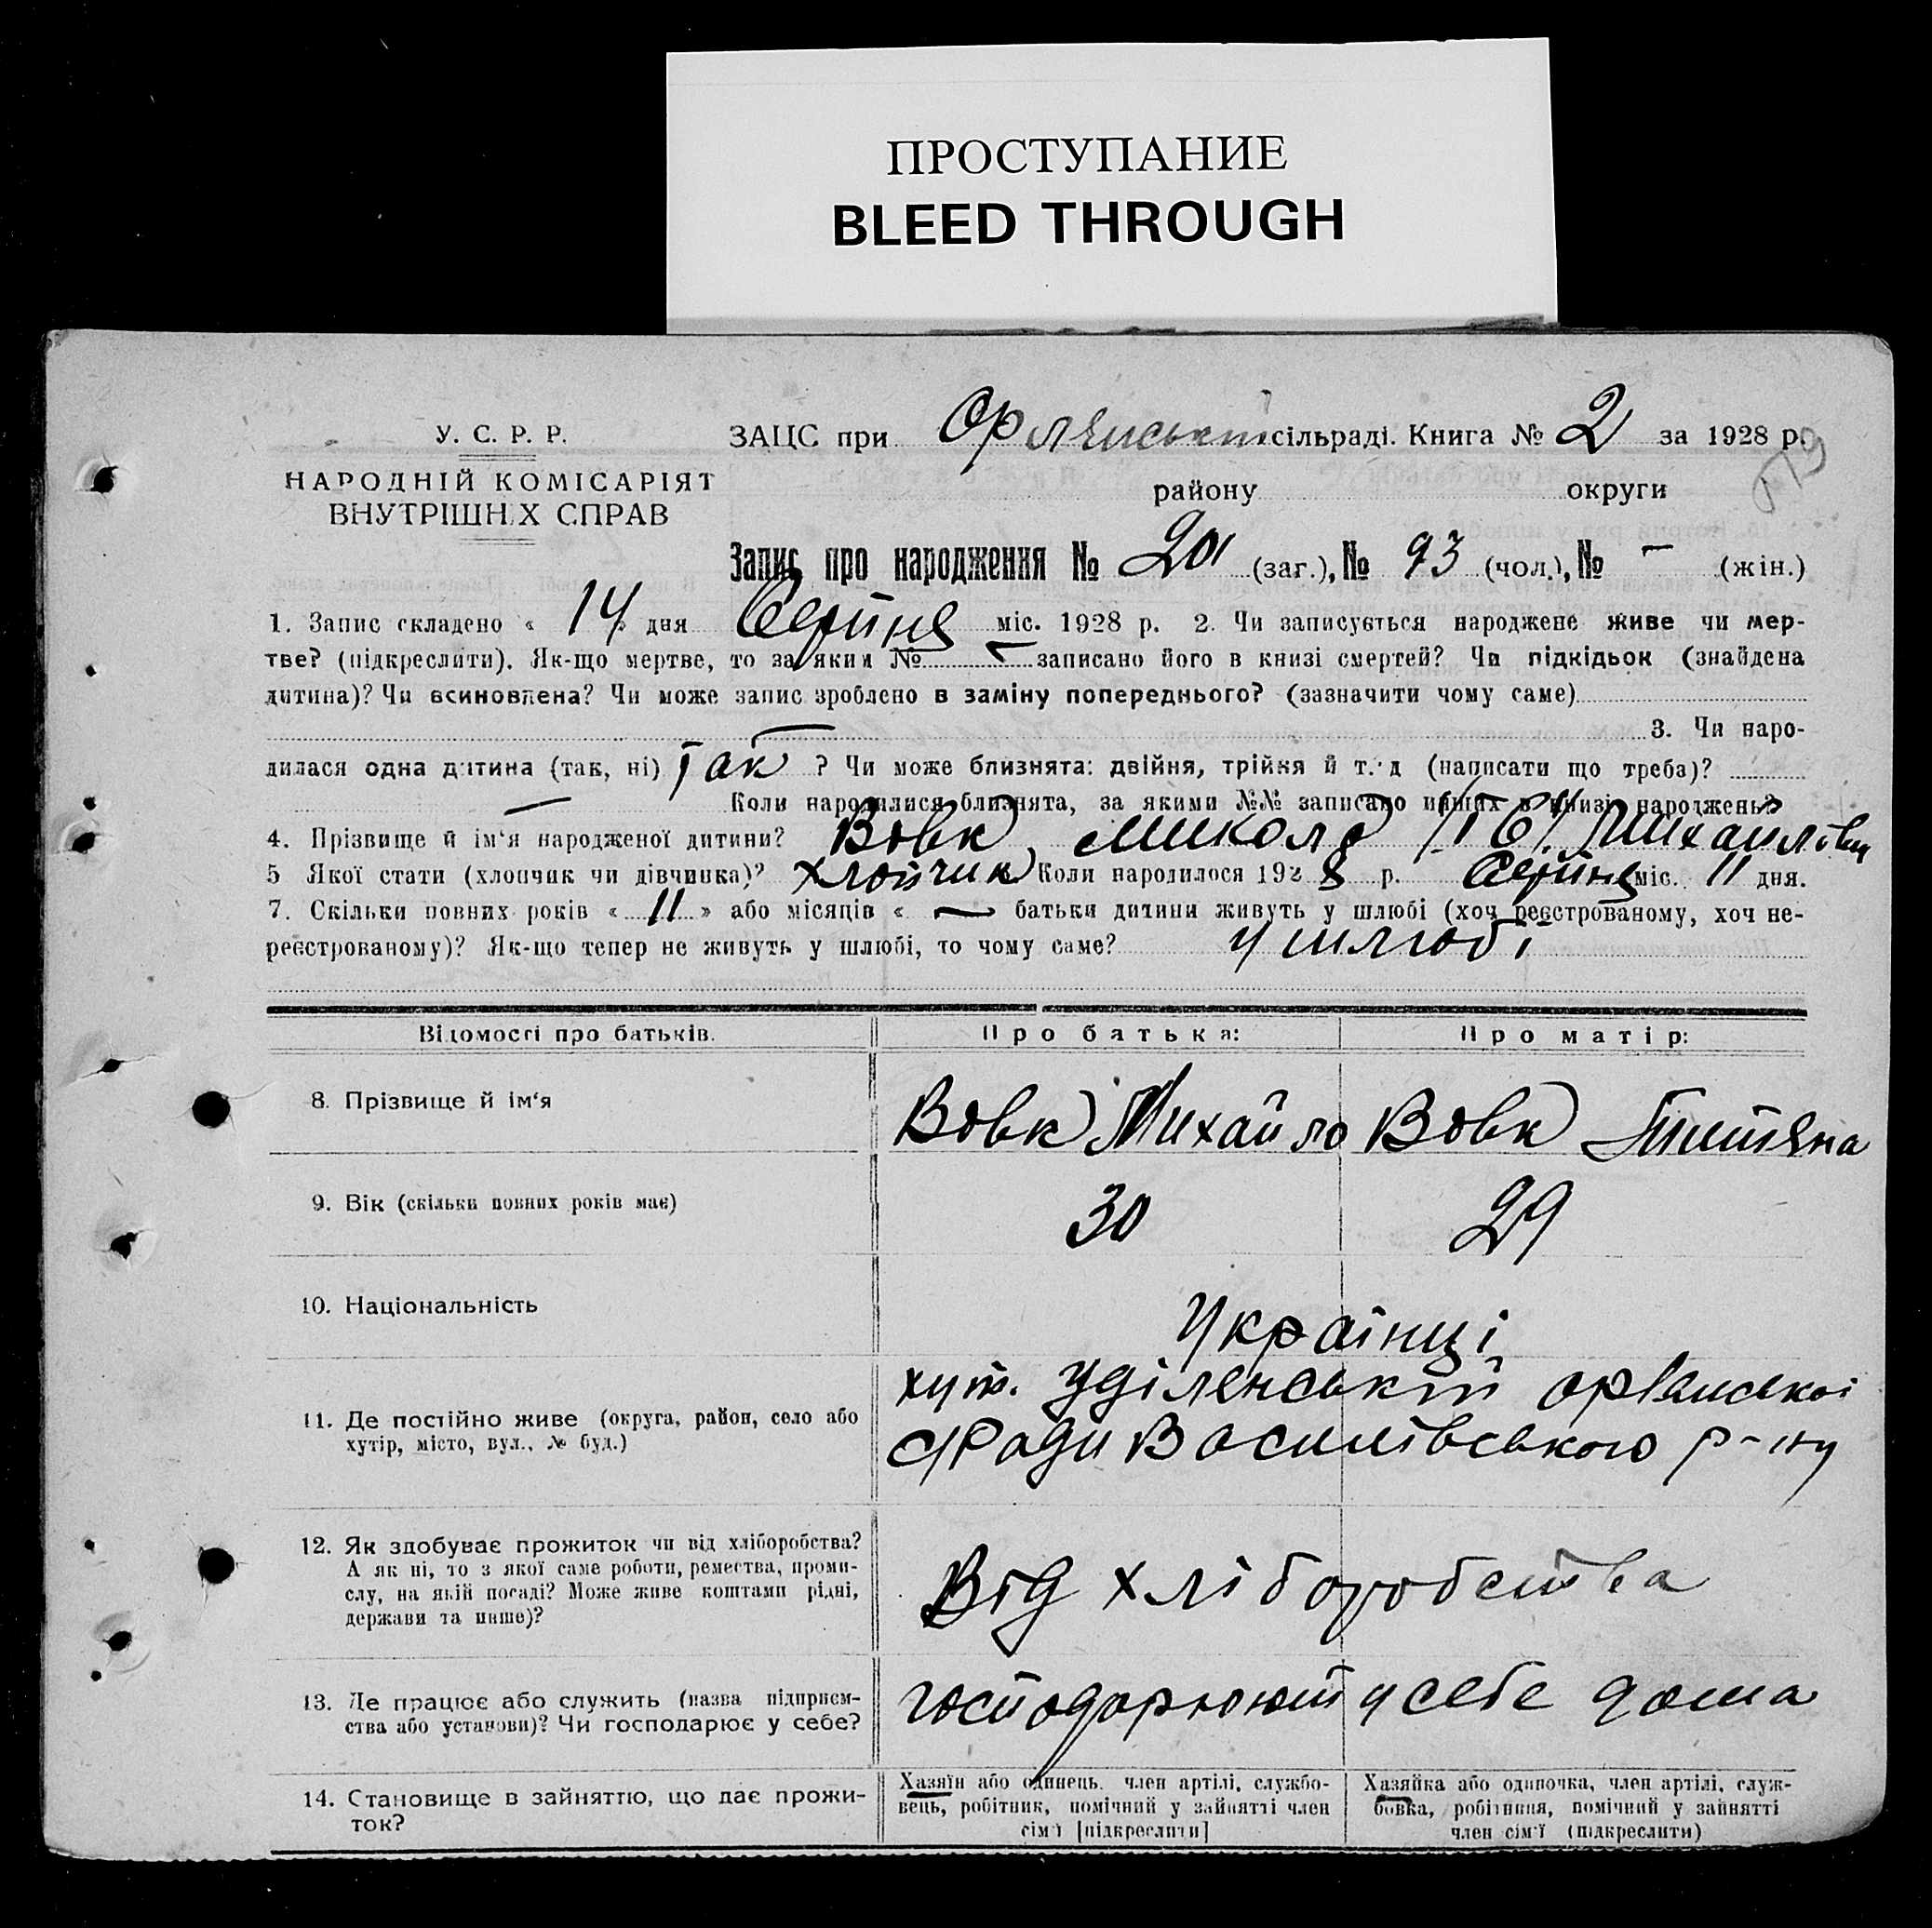 ПРОСТУПАНИЕ
BLEED THROUGH
У. С. Р. Р.
НАРОДНІЙ КОМІСАРІЯТ
ВНУТРІШНІХ СПРАВ
ЗАЦС при Орлянській сільраді. Книга № 2 за 1928 р.
району округи
Запис про народження № 201 (заг.), № 93 (чол.), № – (жін.)
1. Запис складено « 14 » дня Серпня міс. 1928 р. 2. Чи записується народжене живе чи мер-
тве? (підкреслити). Як-що мертве, то за яким № – записано його в книзі смертей? Чи підкідьок (знайдена
дитина)? Чи всиновлена? Чи може запис зроблено в заміну попереднього? (зазначити чому саме)
— 3. Чи наро-
дилася одна дитина (так, ні) Так ? Чи може близнята: двійня, трійня й т. д (написати що треба)?
— Коли народилися близнята, за якими №№ записано инших в книзі народжень?
4. Прізвище й ім‘я народженої дитини? Вовк Микола Михайлович
5 Якої стати (хлопчик чи дівчинка)? Хлопчик Коли народилося 1928 р. Серпня міс. 11 дня.
7. Скільки повних років « 11 » або місяців « — батьки дитини живуть у шлюбі (хоч реєстрованому, хоч не-
реєстрованому)? Як-що тепер не живуть у шлюбі, то чому саме? у шлюбі
Відомості про батьків. Про батька: Про матір:
8. Прізвище й ім‘я Вовк Михайло Вовк Титяна
9. Вік (скільки повних років має) 30 29
10. Національність Українці
11. Де постійно живе (округа, район, село або
хутір, місто, вул., № буд.)
хут. Уділенський Орлянської
с/Ради Василівського р-ну
12. Як здобуває прожиток чи від хліборобства?
А як ні, то з якої саме роботи, ремества, проми-
слу, на якій посаді? Може живе коштами рідні,
держави та инше)?
Від хліборобства
13. Де працює або служить (назва підприєм-
ства або установи)? Чи господарює у себе?
господарюють у себе дома
14. Становище в зайняттю, що дає прожи-
ток?
Хазяїн або одинець. член артілі, службо-
вець, робітник, помічний у зайнятті член
сім‘ї [підкреслити]
Хазяйка або одиночка, член артілі, служ-
бовка, робітниця, помічний у зайнятті
член сім‘ї (підкреслити)